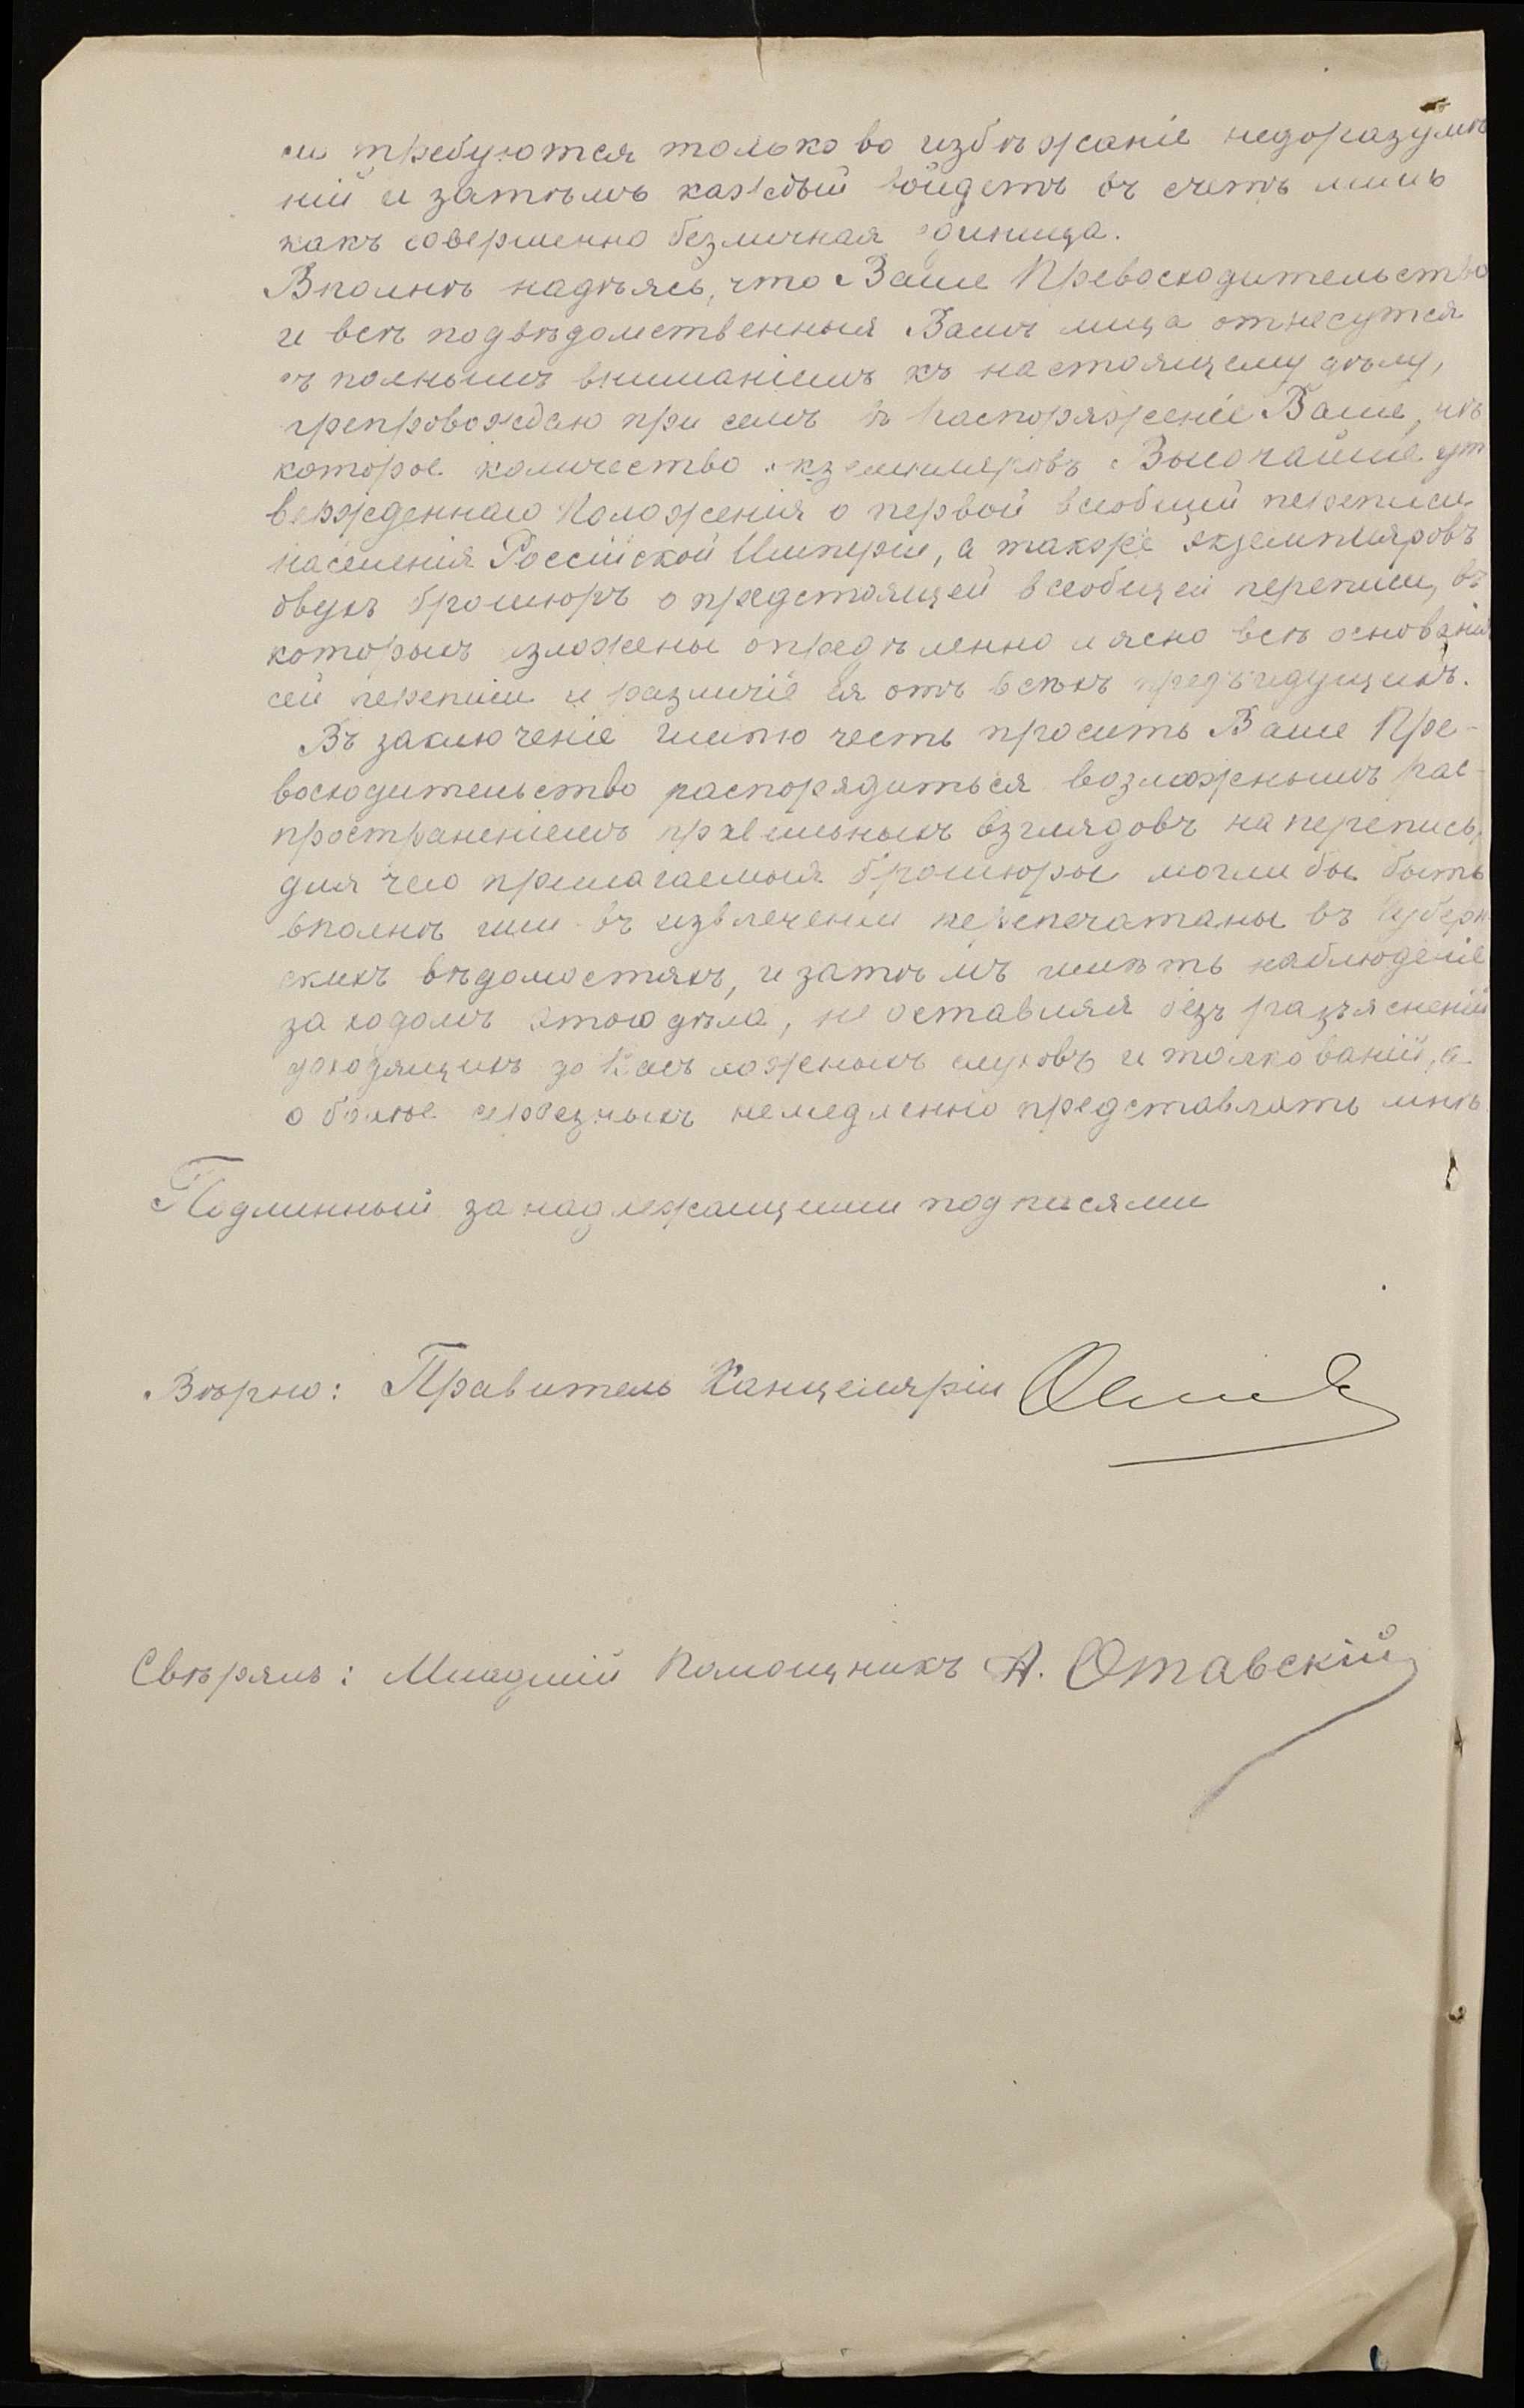 си требуются только во избѣжаніе недоразумѣ
ній и затѣмъ каждый войдетъ въ счетъ лишь
какъ совершенно безличная единица.
Вполнѣ надѣясь, что Ваше Превосходительство
и всѣ подвѣдомственныя Вамъ лица отнесутся
съ полнымъ вниманіемъ къ настоящему дѣлу,
препровождаю при семъ въ распоряженіе Ваше, нѣ
которое количество экземпляровъ Высочайше ут
вержденнаго Положенія о первой всеобщей переписи
населенія Россійской Имперіи, а также экземпляровъ
двухъ брошюръ о предстоящей всеобщей переписи, въ
которыхъ изложены опредѣленно и ясно всѣ основанія
сей переписи и различіе ея отъ всѣхъ предъидущихъ.
Въ заключеніе имѣю честь просить Ваше Пре-
восходительство распорядиться возможнымъ рас-
пространеніемъ правильныхъ взглядовъ на перепись,
для чего прилагаемыя брошюры могли бы быть
вполнѣ или въ извлеченіи перепечатаны въ Губерн
скихъ вѣдомостяхъ, и затѣмъ имѣть наблюденіе
за ходомъ этого дѣла, не оставляя безъ разъясненій
доходящихъ до Васъ ложныхъ слуховъ и толкованій, а
о болѣе серьезныхъ немедленно представлять мнѣ.
Подлинный за надлежащими подписями
Вѣрно: Правитель Канцеляріи
Свѣрялъ: Младшій Помощникъ А. Отавскій